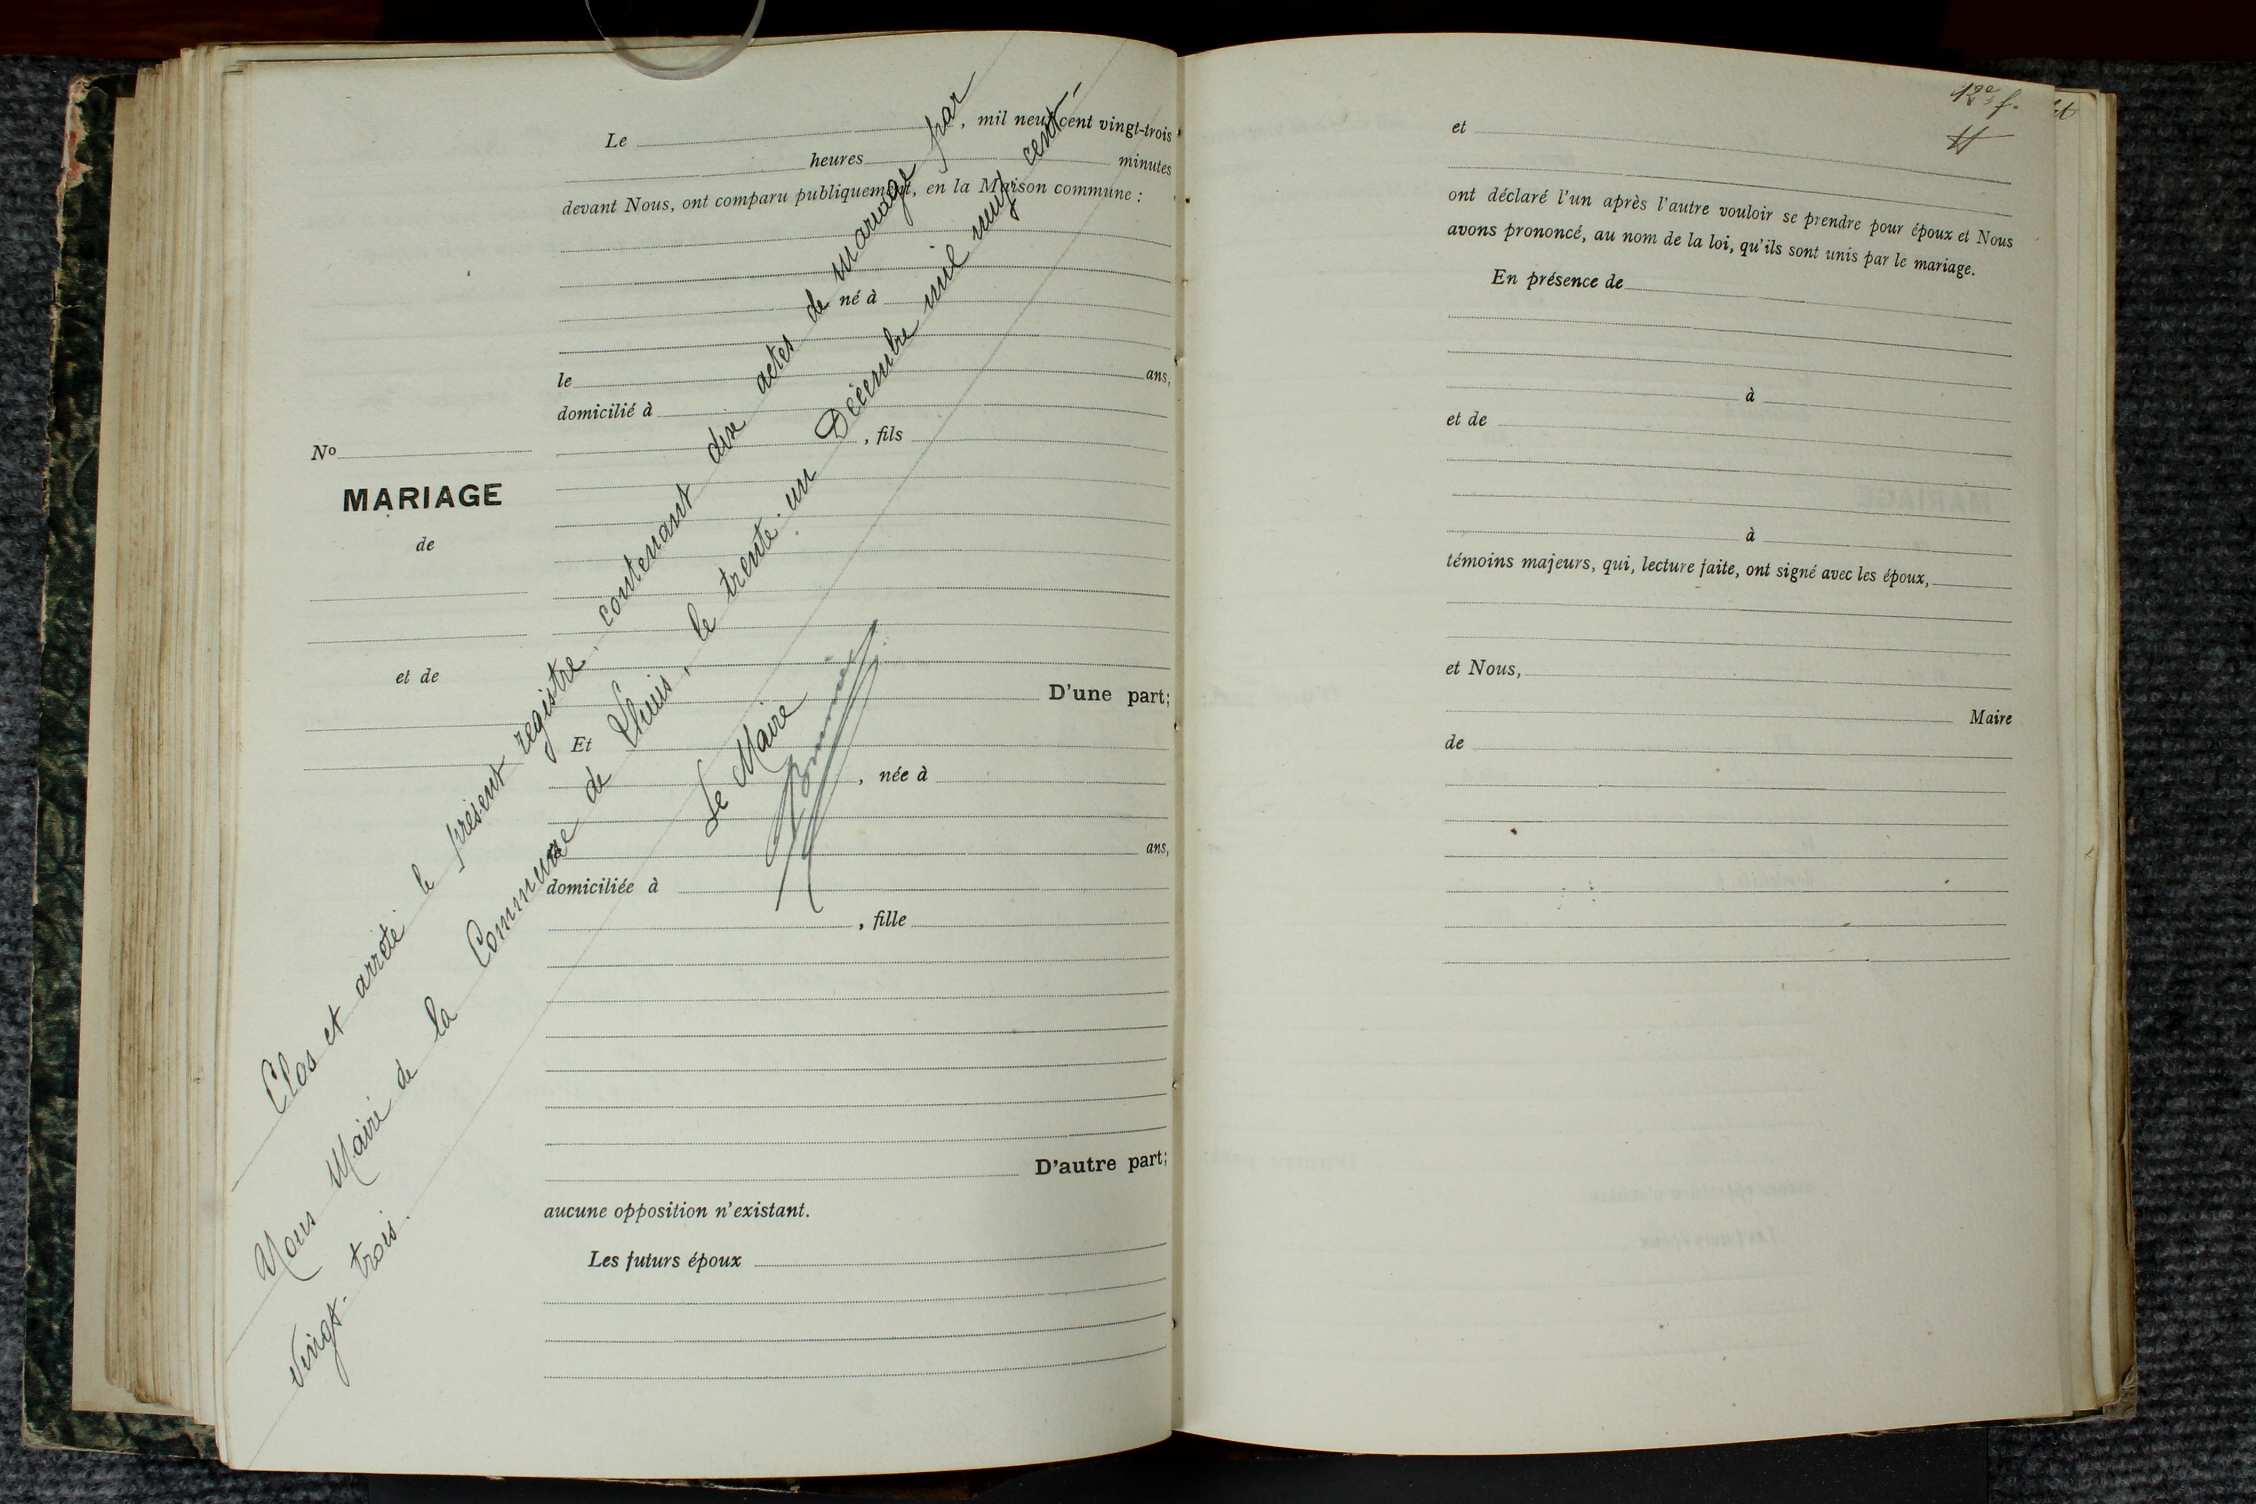 Le , mil neuf cent vingt-trois
heures minutes
devant Nous, ont comparu publiquement, en la Maison commune :
né à
le ans,
domicilié à
, fils
No
MARIAGE
de
et de
D'une part;
Et
, née à
ans,
domiciliée à
, fille
D'autre part;
aucune opposition n'existant.
Les futurs époux
Clos et arrêté le présent registre contenant dix actes de mariage par
Nous Maire de la Commune de le trente-un Décembre mil neuf cent-
vingt-trois.
Le Maire
12e f.
et
ont déclaré l'un après l'autre vouloir se prendre pour époux et Nous
avons prononcé, au nom de la loi, qu'ils sont unis par le mariage.
En présence de
à
et de
à
témoins majeurs, qui, lecture faite, ont signé avec les époux,
et Nous,
Maire
de